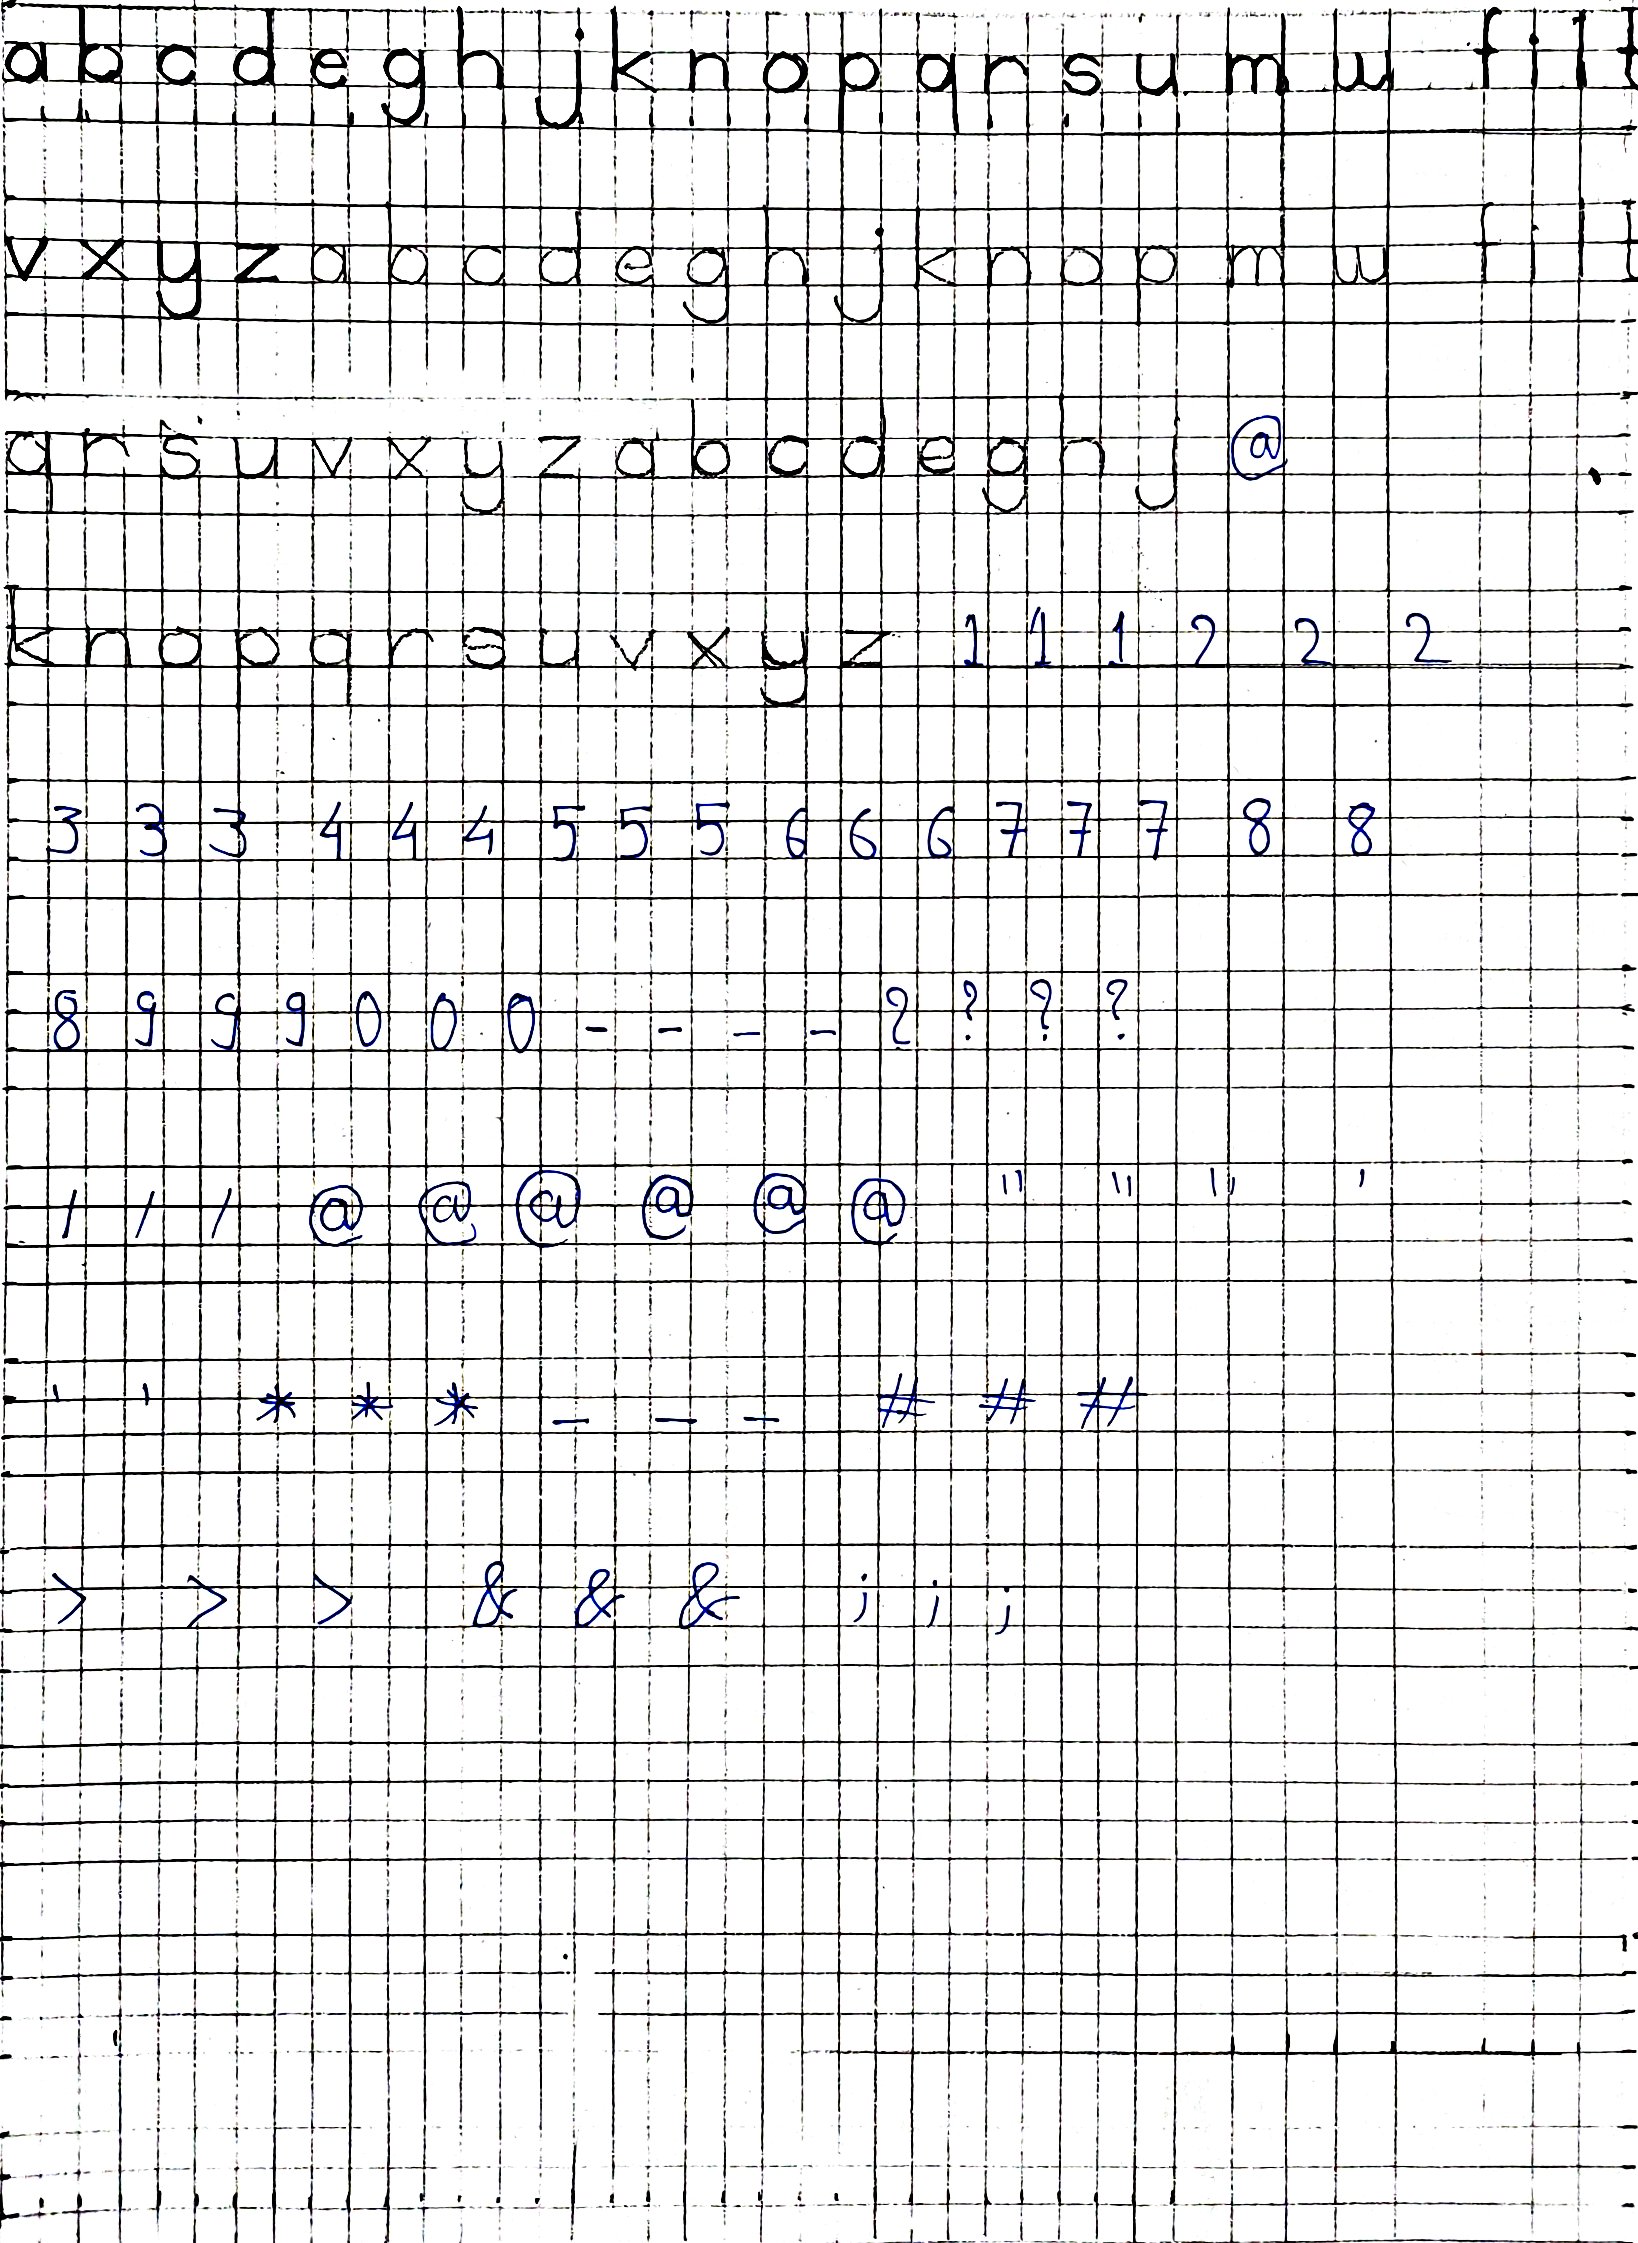 a b c d e g h j k n o p q r s u m w f i l t
v x y z a b c d e g h j k n o p m w f i l t
q r s u v x y z a b c d e g h j @
k n o p q r s u v x y z 1 1 1 2 2 2
3 3 3 4 4 4 5 5 5 6 6 6 7 7 7 8 8
8 9 9 9 0 0 0 - - - - ? ? ? ?
/ / / @ @ @ @ @ @ " " " '
' ' * * * _ _ _ # # #
> > > & & & ; ; ;